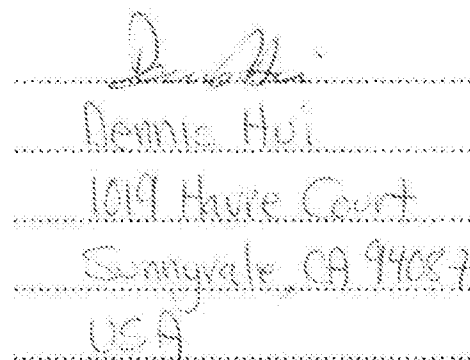 Dennis Hui
1019 Hwre Court
Sunnyvale, CA 94087
USA